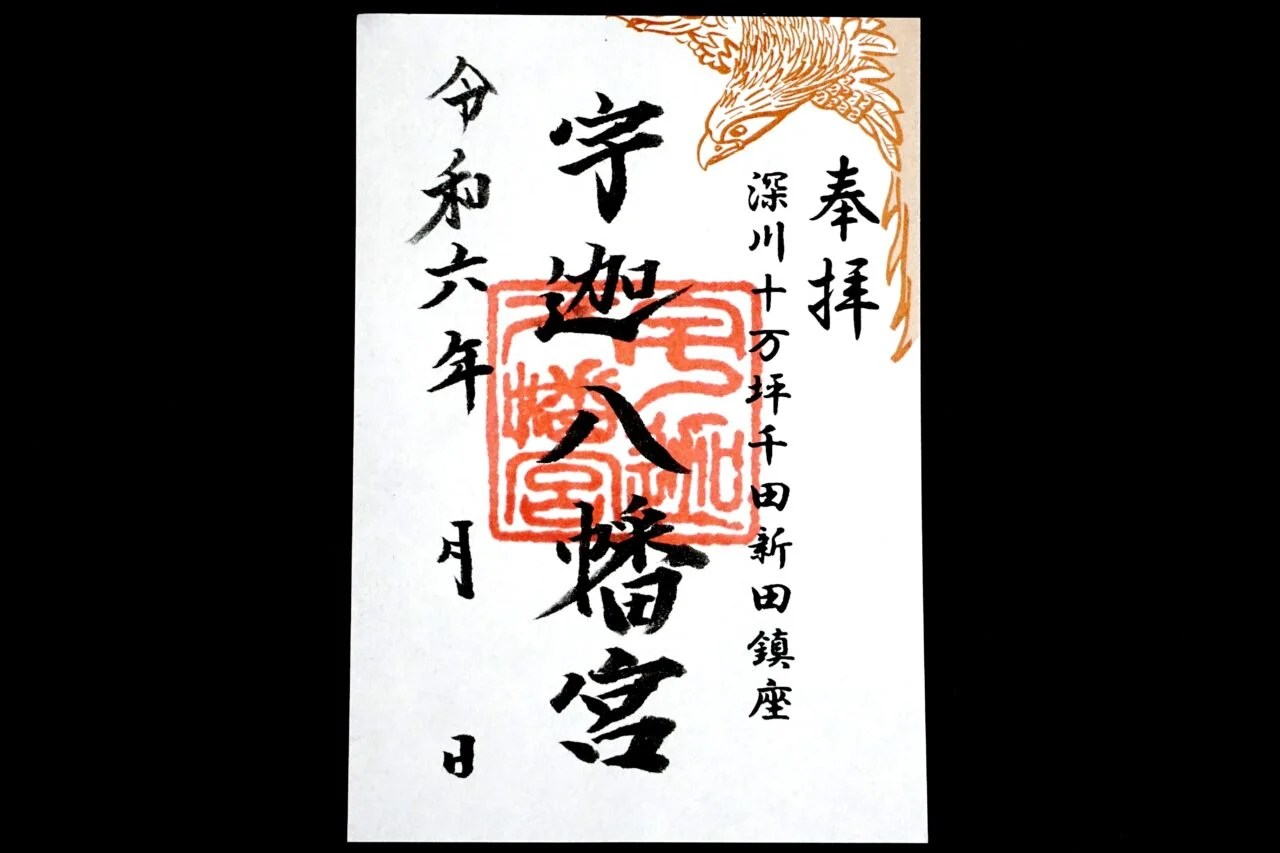 奉拝
深川十万坪千田新田鎮座
宇迦八幡宮
宇迦
八幡宮
令和六年 月 日